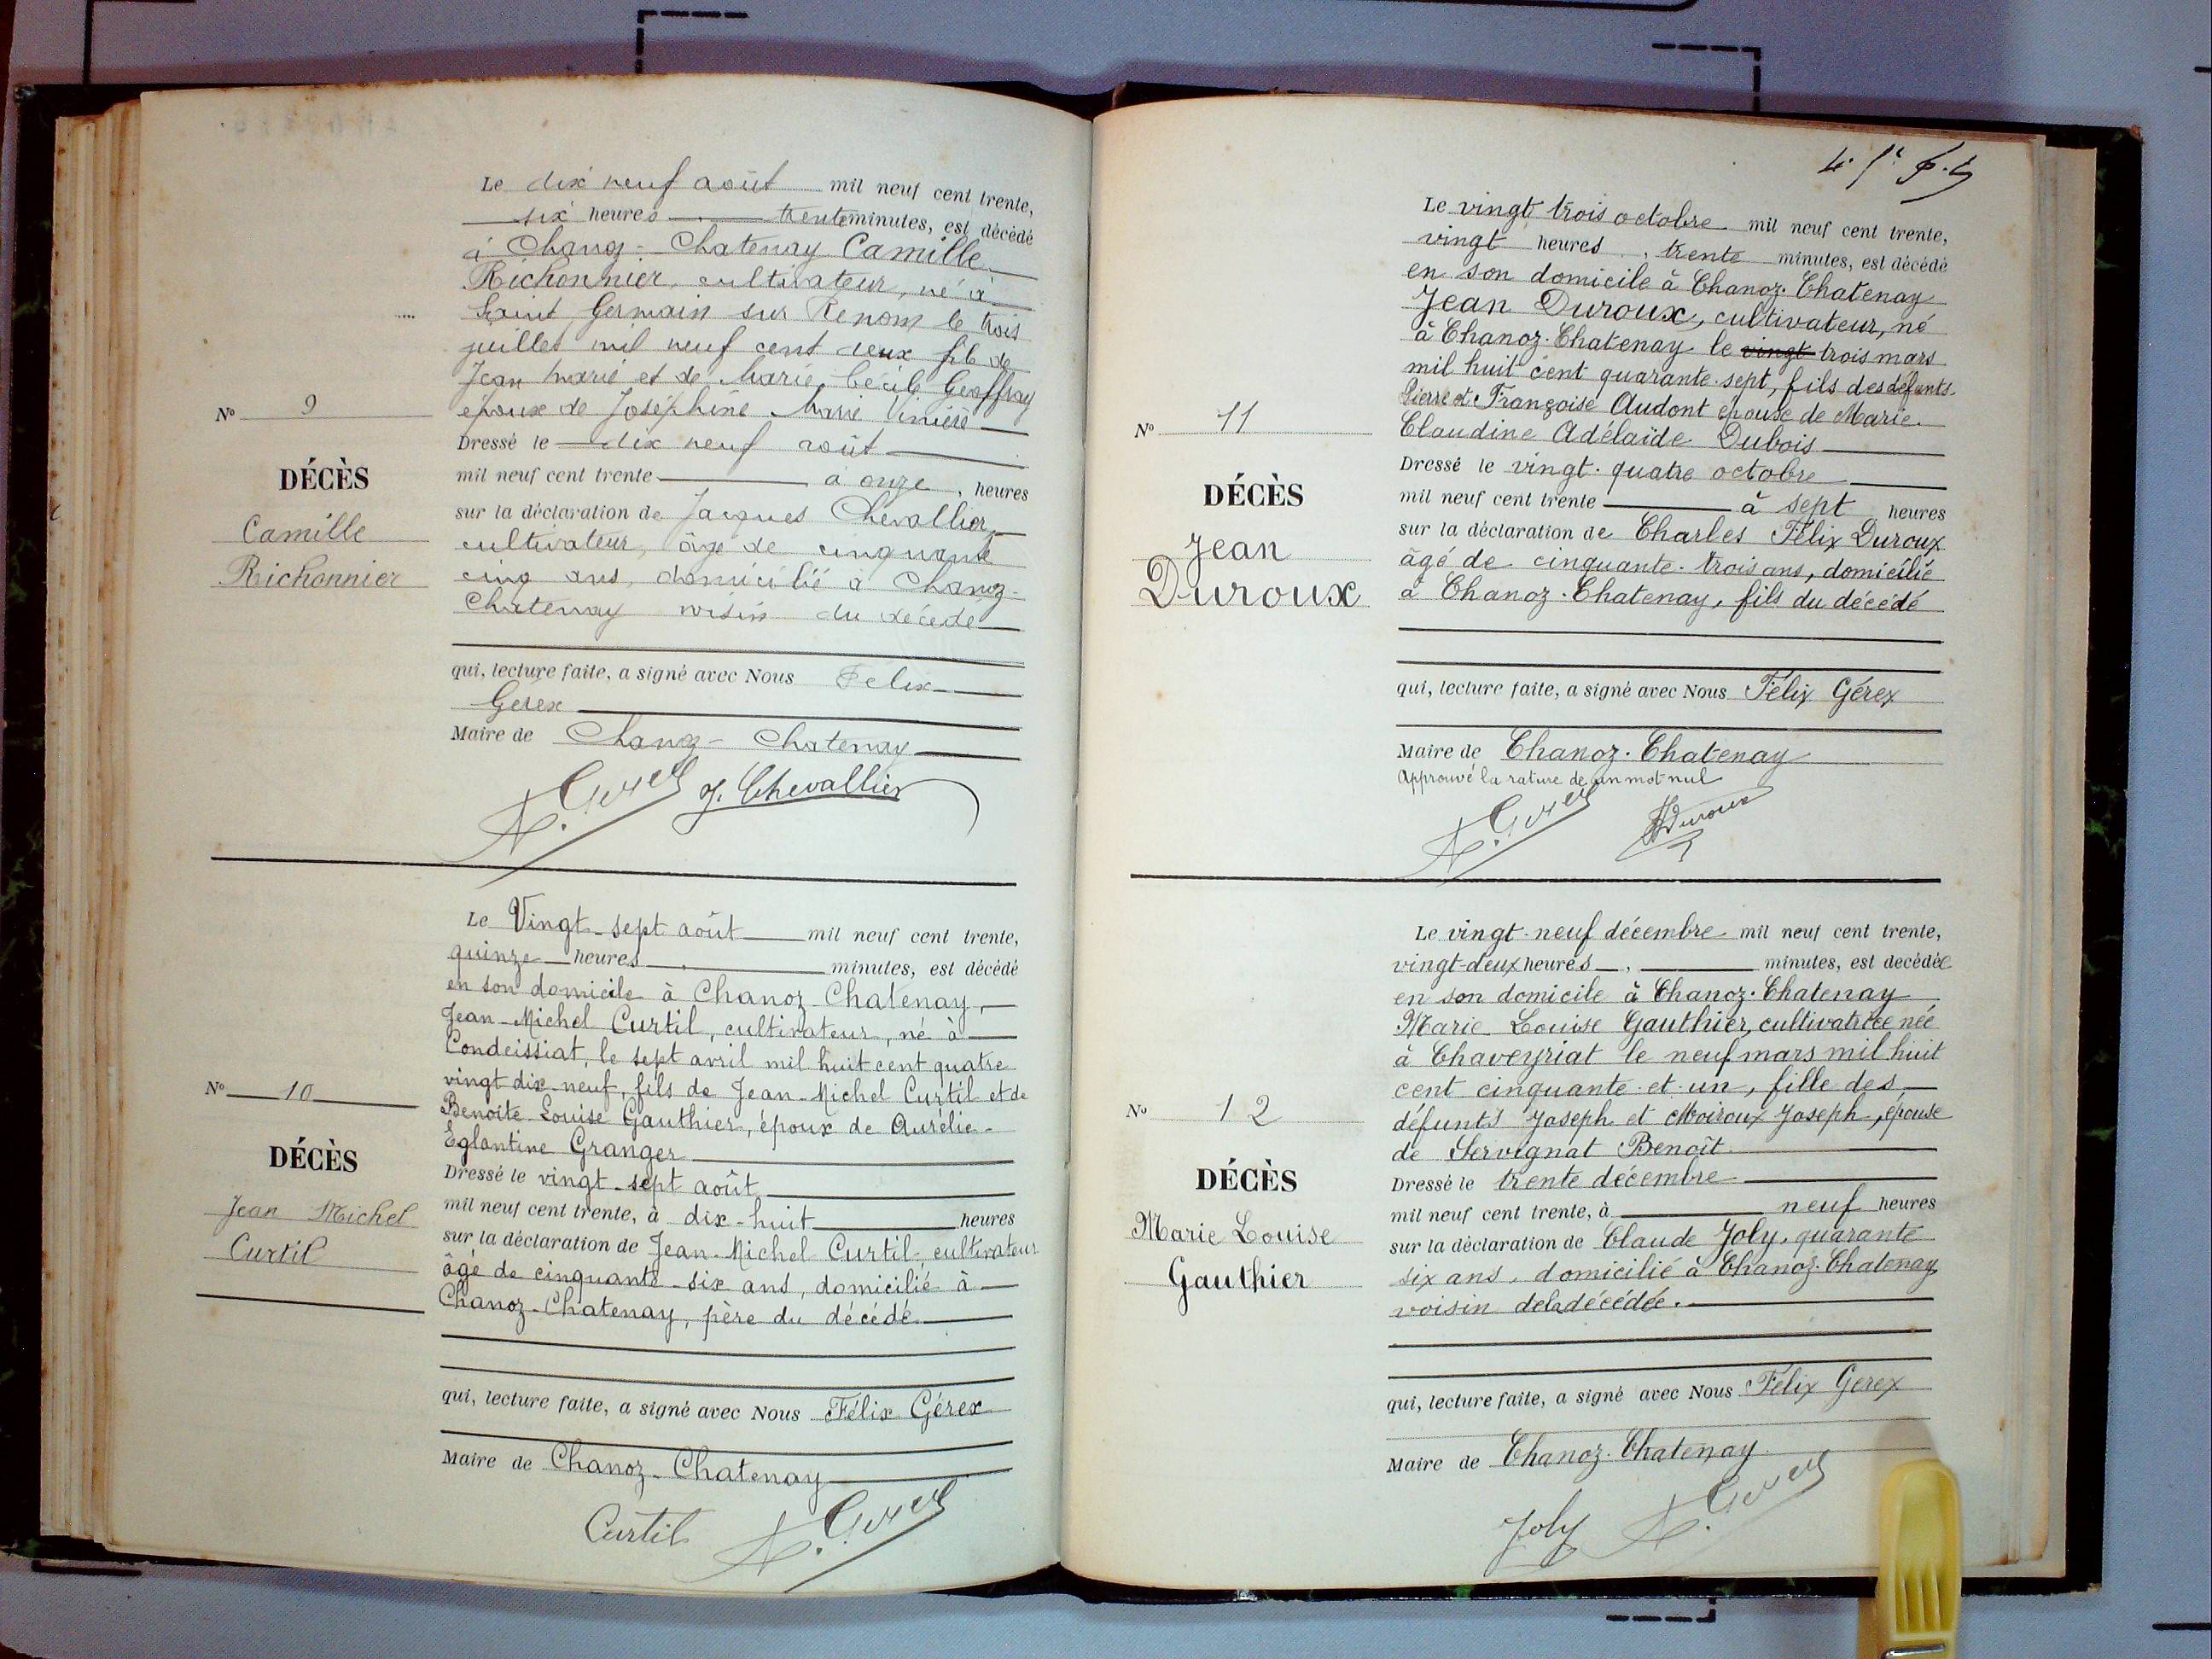 N° 9
DÉCÈS
Camille
Richonnier
Le dix neuf août mil neuf cent trente,
six heures trente minutes, est décédé
à Chanoz-Chatenay Camille
Richonnier, cultivateur, né à
Saint Germain sur Renom le trois
juillet mil neuf cent deux fils de
Jean Marie et de Marie Cécile Geoffray
époux de Joséphine Marie
Dressé le dix neuf août
mil neuf cent trente à onze, heures
sur la déclaration de Jacques Chevallier,
cultivateur, âgé de cinquante
cinq ans, domicilié à Chanoz-
Chatenay voisin du décédé
qui, lecture faite, a signé avec Nous Félix
Gérex
Maire de Chanoz-Chatenay
J. Chevallier
N° 10
DÉCÈS
Jean Michel
Curtil
Le Vingt-sept août mil neuf cent trente,
quinze heures, minutes, est décédé
en son domicile à Chanoz-Chatenay,
Jean-Michel Curtil, cultivateur, né à
Condeissiat, le sept avril mil huit cent quatre
vingt dix-neuf, fils de Jean-Michel Curtil et de
Benoîte Louise Gauthier, époux de Aurélie-
Eglantine Granger
Dressé le vingt-sept août
mil neuf cent trente, à dix-huit heures
sur la déclaration de Jean-Michel Curtil, cultivateur
âgé de cinquante-six ans, domicilié à
Chanoz-Chatenay, père du décédé
qui, lecture faite, a signé avec Nous Félix Gérex
Maire de Chanoz-Chatenay
Curtil
N° 11
DÉCÈS
Jean
Duroux
Le vingt trois octobre mil neuf cent trente,
vingt heures, trente minutes, est décédé
en son domicile à Chanoz-Chatenay
Jean Duroux, cultivateur, né
à Chanoz-Chatenay le vingt trois mars
mil huit cent quarante-sept, fils des défunts
Pierre et Françoise Audont épouse de Marie
Claudine Adélaïde Dubois
Dressé le vingt-quatre octobre
mil neuf cent trente à sept heures
sur la déclaration de Charles Félix Duroux
âgé de cinquante-trois ans, domicilié
à Chanoz-Chatenay, fils du décédé
qui, lecture faite, a signé avec Nous Félix Gérex
Maire de Chanoz-Chatenay
Approuvé la rature de un mot nul
Duroux
N° 12
DÉCÈS
Marie Louise
Gauthier
Le vingt-neuf décembre mil neuf cent trente,
vingt-deux heures, minutes, est décédée
en son domicile à Chanoz-Chatenay
Marie Louise Gauthier, cultivatrice née
à Chaveyriat le neuf mars mil huit
cent cinquante-et-un, fille des
défunts Joseph et Moiroux Joseph, épouse
de Servignat Benoît
Dressé le trente décembre
mil neuf cent trente, à neuf heures
sur la déclaration de Claude Joly, quarante
six ans, domicilié à Chanoz-Chatenay
voisin de la décédée.
qui, lecture faite, a signé avec Nous Félix Gerex
Maire de Chanoz-Chatenay
Joly